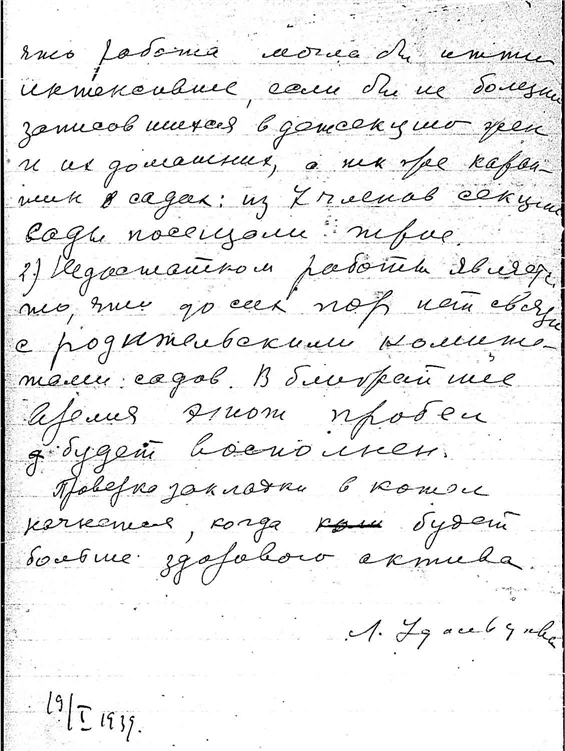 что работа могла бы итти
интенсивнее, если бы не болезни
записавшихся в детсекцию жен
и их домашних, а также каран-
тин в садах: из 7 членов секции
сады посещали трое.
2) Недостатком работы является
то, что до сих пор нет связи
с родительскими комите-
тами садов. В ближайшее
время этот пробел
будет восполнен.
Проверка закладки в котел
начнется, когда будет
больше здорового актива.
Л.
19/I 1939.